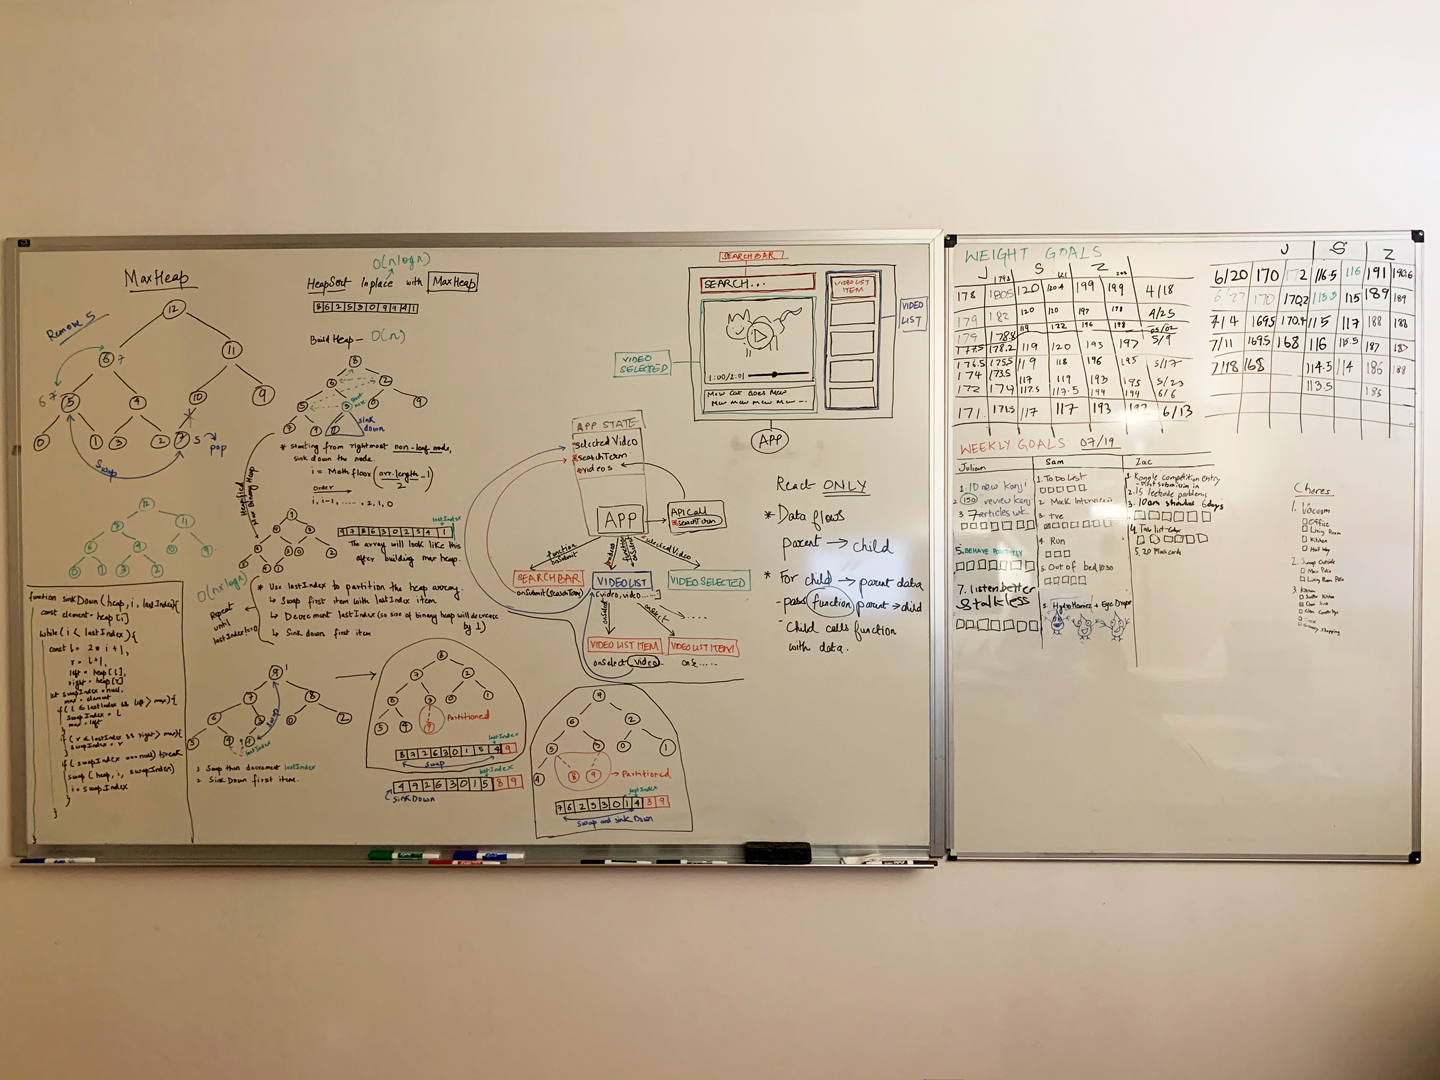 MaxHeap
Remove 5
12
6 7
11
6 7
5
4
10
9
0
1
3
2
7
5
pop
Swap
12
function sinkDown(heap, i, lastIndex){
const element = heap[i]
while(i < lastIndex){
const l = 2 * i + 1,
r = l + 1,
left = heap[l],
right = heap[r]
let swapIndex = null,
max = element
if(l ≤ lastIndex && left > max){
swapIndex = l
max = left
}
if(r ≤ lastIndex && right > max){
swapIndex = r
}
if(swapIndex === null) break
swap(heap, i, swapIndex)
i = swapIndex
}
}
O(nlogn)
HeapSort Inplace with MaxHeap
Build Heap - O(n)
sink
down
* starting from rightmost non-leaf node,
sink down the node.
i = Math floor(arr.length - 1)
2
order
i, i-1, ...... , 2, 1, 0
Heapified
Max Binary Heap
lastIndex
The array will look like this
after building max heap.
* Use lastIndex to partition the heap array.
↳ Swap first item with lastIndex item
↳ Decrement lastIndex (so size of binary heap will decrease
by 1)
↳ Sink down first item
Repeat
until
lastIndex
swap
lastIndex
1 Swap then decrement lastIndex
2 Sink Down first item.
Partitioned
lastIndex
8 7 2 6 3 0 1 5 4 9
swap
lastIndex
4 9 2 6 3 0 1 5 8 9
sinkDown
Partitioned
lastIndex
7 6 2 5 3 0 1 4 8 9
swap and sink Down
SEARCHBAR
SEARCH...
VIDEO LIST
ITEM
VIDEO
LIST
VIDEO
SELECTED
1:00/2:01
Mew Cat Does Mew
Mew Mew Mew Mew ...
APP
APP STATE
selectedVideo
searchTerm
videos
APP
API Call
searchTerm
function
onSubmit
videos
function
onSelect
selectedVideo
SEARCHBAR
onSubmit(searchTerm)
VIDEOLIST
[video, video......]
VIDEO SELECTED
onSelect
onSelect
......
VIDEO LIST ITEM
VIDEO LIST ITEM
onSelect(video)
onS......
React ONLY
* Data flows
parent → child
* For child → parent data
- pass function parent → child
- Child calls function
with data.
WEIGHT GOALS
J S Z
178 180.5 120 120.4 199 199 4/18
179 182 120 120 197 198 4/25
179 178.8 119 122 196 198
177.5 178.2 119 120 193 197 5/9
176.5 175.5 119 118 196 195 5/17
174 173.5 117 119 193 195 5/23
172 174 117.5 117.5 194 194 6/6
171 171.5 117 117 193 192 6/13
J S Z
6/20 170 172 116.5 116 191 190.6
6/27 170 170.2 113.3 115 189 189
7/4 169.5 170.4 115 117 188 188
7/11 169.5 168 116 115.5 187 187
7/18 168 114.5 114 186 188
113.5 185
WEEKLY GOALS 07/19
Julian
1. 10 new kanji
2. 150 review kanj
3. 7 articles wk
5. BEHAVE POSITIVELY
7. listen better
Stalkless
Sam
1. To Do List
2. Mock Interview
4. Run
5. Out of bed 10:30
Hydro Homiez + Eye Drops
Zac
1. Kaggle competition entry
- first submission in
2. 15 leetcode problems
3. 10am standup 6days
5. 20 Flash cards
Chores
1. Vacuum
Office
Living Room
Kitchen
Hall Way
2. Sweep Outside
Main Patio
Living Room Patio
3. Kitchen
Grocery shopping